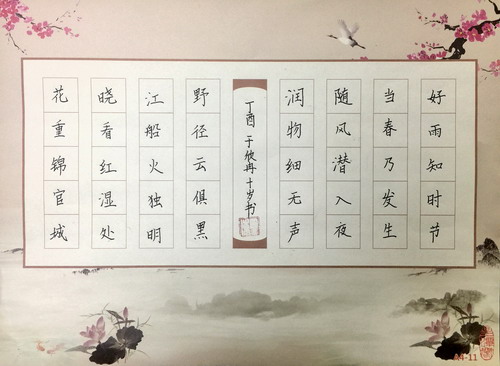 好雨知时节
当春乃发生
随风潜入夜
润物细无声
丁酉 于欣冉 十岁书
野径云俱黑
江船火独明
晓看红湿处
花重锦官城
A4-11